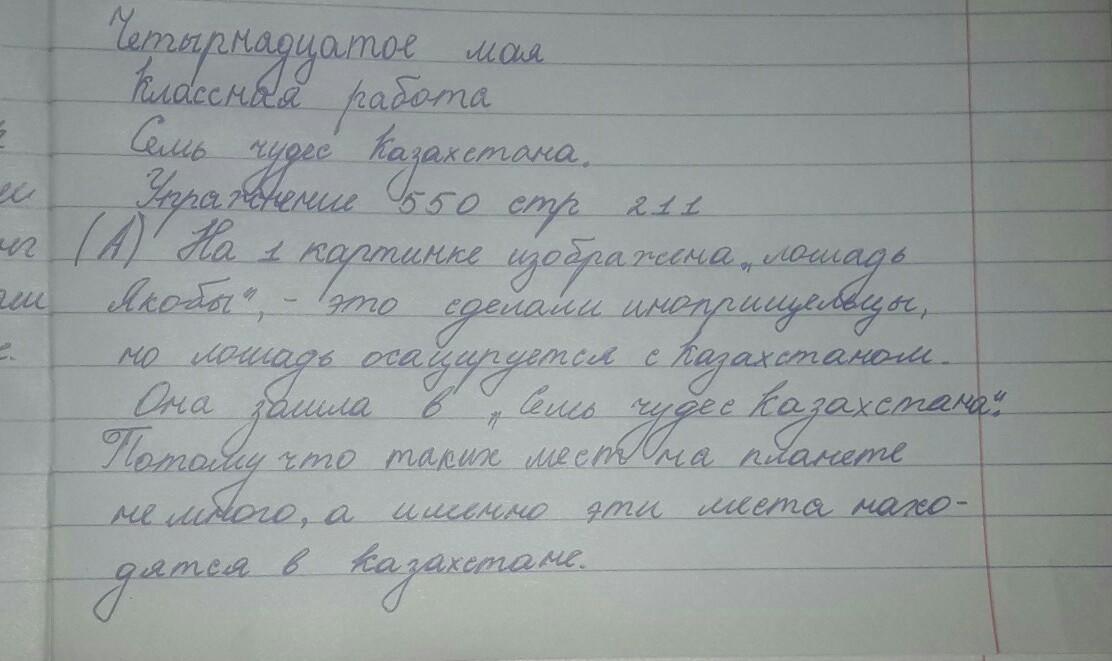 Четырнадцатое мая
Классная работа
Семь чудес Казахстана.
Упражнение 550 стр 211
(А) На 1 картинке изображена „лошадь
Якобы", - это сделали иноприщельцы,
но лошадь осацируется с Казахстаном.
Она зашла в „Семь чудес Казахстана".
Потому что таких мест на планете
не много, а именно эти места нахо-
дятся в Казахстане.